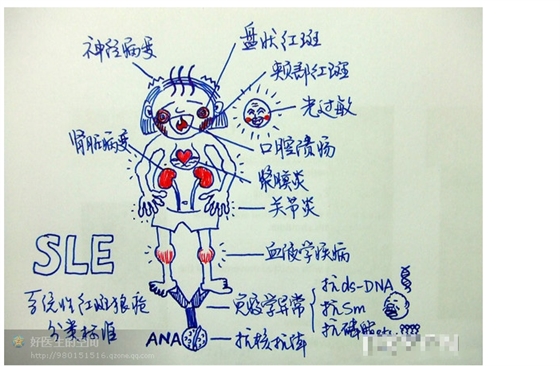 神经病变
盘状红斑
颊部红斑
光过敏
口腔溃疡
肾脏病变
浆膜炎
关节炎
血液学疾病
SLE
系统性红斑狼疮
分类标准
免疫学异常
抗ds-DNA
抗Sm
抗磷脂
ANA
抗核抗体
好医生的空间
http://980151516.qzone.qq.com